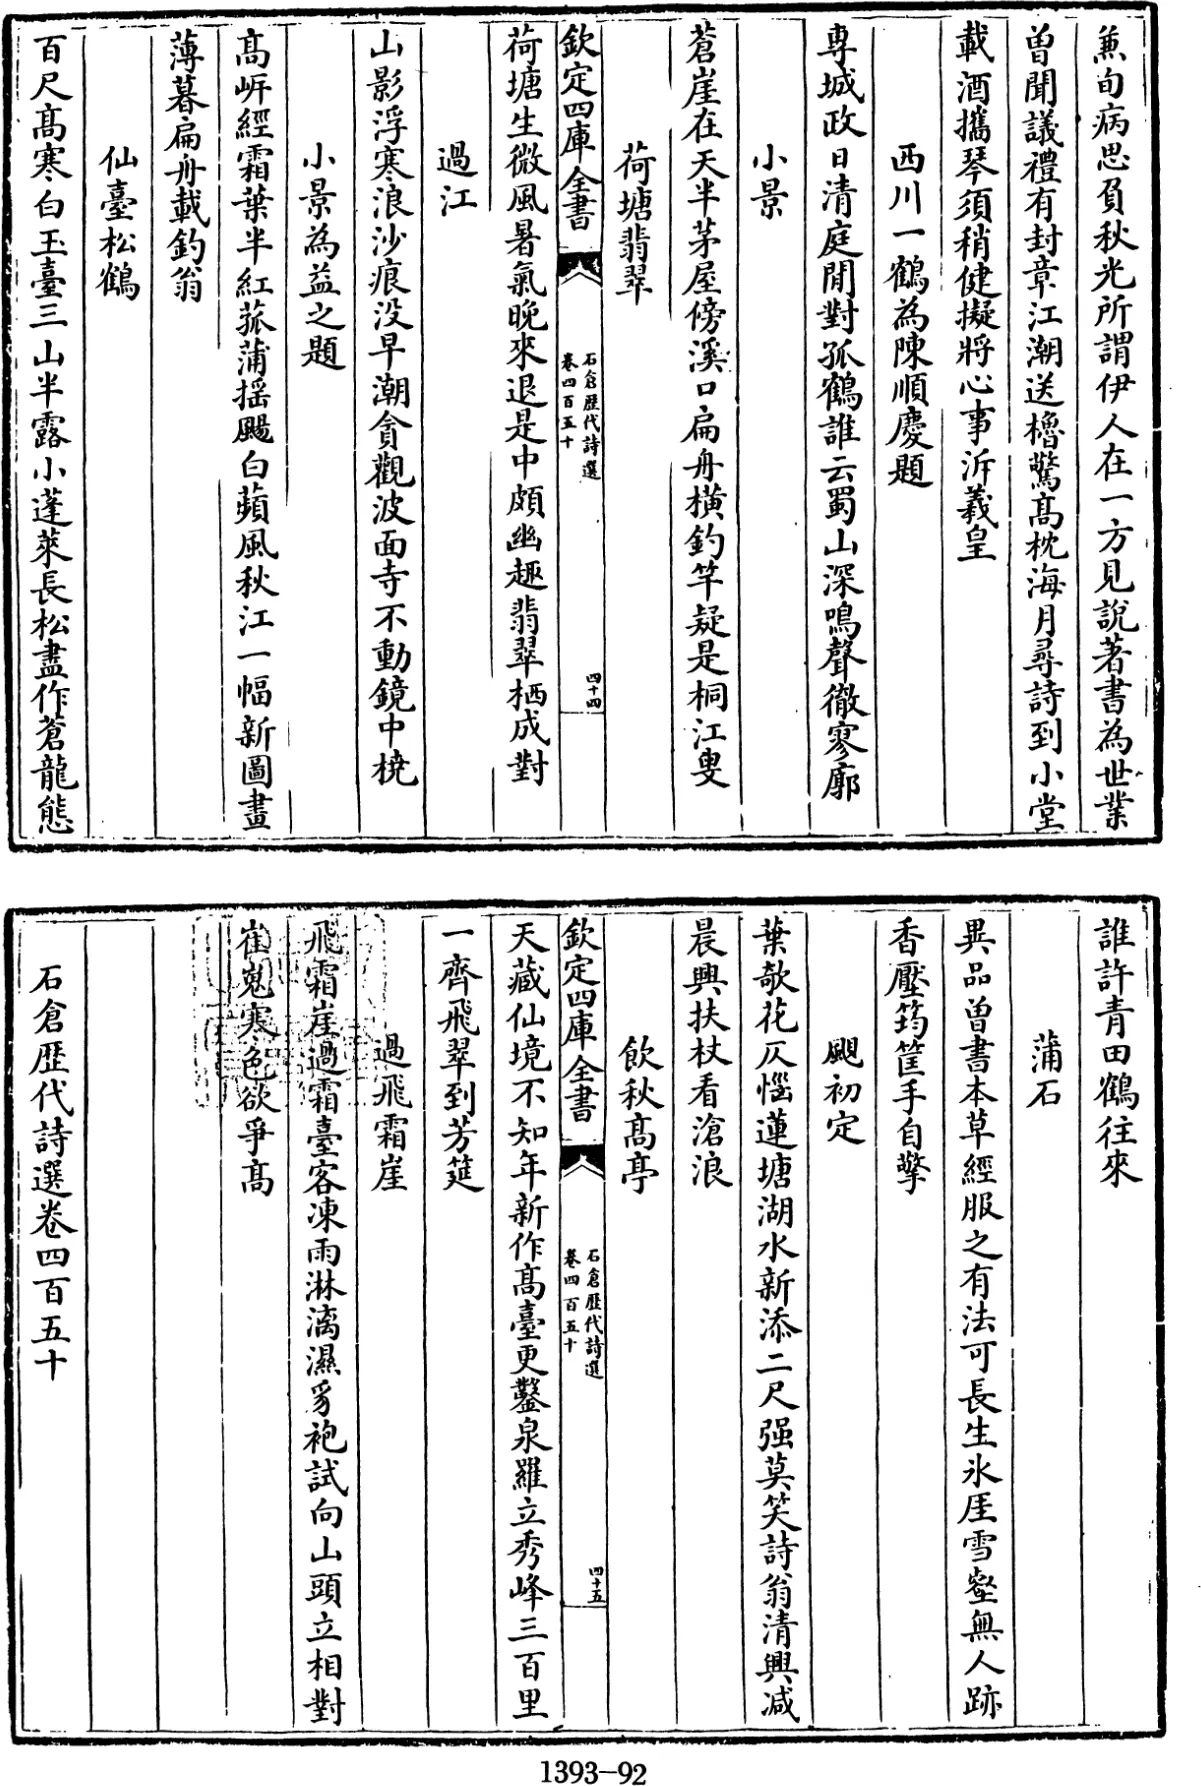 兼旬病思負秋光所謂伊人在一方見説著書為世業
曾聞議禮有封章江潮送櫓驚髙枕海月尋詩到小堂
載酒攜琴須稍健擬將心事泝羲皇
西川一鶴為陳順慶題
專城政日清庭閒對孤鶴誰云蜀山深鳴聲徹寥廓
小景
蒼崖在天半茅屋傍溪口扁舟横釣竿疑是桐江叟
荷塘翡翠
欽定四庫全書
石倉歴代詩選
卷四百五十
四十四
荷塘生微風暑氣晚來退是中頗幽趣翡翠栖成對
過江
山影浮寒浪沙痕没早潮貪觀波面寺不動鏡中橈
小景為益之題
髙岍經霜葉半紅菰蒲摇颺白蘋風秋江一幅新圖畫
薄暮扁舟載釣翁
仙臺松鶴
百尺髙寒白玉臺三山半露小蓬萊長松盡作蒼龍態
誰許青田鶴往來
蒲石
異品曽書本草經服之有法可長生氷厓雪壑無人跡
香壓筠筐手自擎
颶初定
葉欹花仄惱蓮塘湖水新添二尺强莫笑詩翁清興减
晨興扶杖看滄浪
飲秋髙亭
欽定四庫全書
石倉歴代詩選
卷四百五十
四十五
天藏仙境不知年新作髙臺更鑿泉羅立秀峰三百里
一齊飛翠到芳筵
過飛霜崖
飛霜崖過霜臺客凍雨淋漓濕豸袍試向山頭立相對
崔嵬寒色欲爭髙
石倉歴代詩選卷四百五十
1393-92